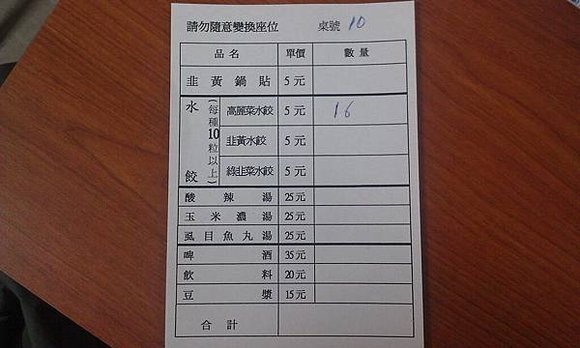 請勿隨意變換座位 桌號 10
品名 單價 數量
韭黃鍋貼 5元
水餃 (每種10粒以上)
高麗菜水餃 5元 16
韭黃水餃 5元
綠韭菜水餃 5元
酸辣湯 25元
玉米濃湯 25元
虱目魚丸湯 25元
啤酒 35元
飲料 20元
豆漿 15元
合計